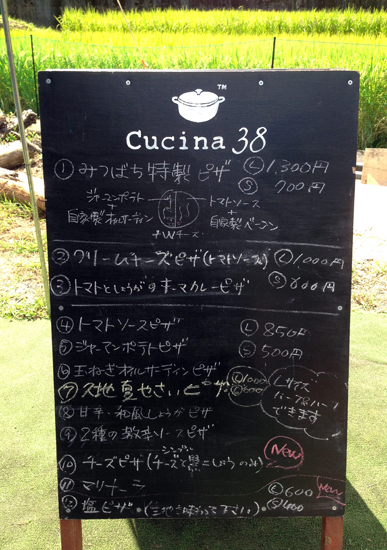 TM
Cucina 38
① みつばち特製ピザ Ⓛ 1,300円
Ⓢ 700円
ジャーマンポテト
+
自家製オイルサーディン
トマトソース
+
自家製ベーコン
+Wチーズ
② クリームチーズピザ(トマトソース) Ⓛ 1,000円
③ トマトとしょうがのキーマカレーピザ Ⓢ 600円
④ トマトソースピザ Ⓛ 850円
⑤ ジャーマンポテトピザ Ⓢ 500円
⑥ 玉ねぎオイルサーディンピザ
⑦ 夏やさいピザ Ⓛ1000
Ⓢ600
Lサイズ
ハーフ&ハーフ
できます
⑧ 甘辛・和風しょうがピザ
⑨ 2種の激辛ソースピザ
シンプル
⑩ チーズピザ(チーズと黒こしょうのみ) New
⑪ マリナーラ
⑫ 塩ピザ・(生地を味わって下さい)・ Ⓛ600 New
Ⓢ400